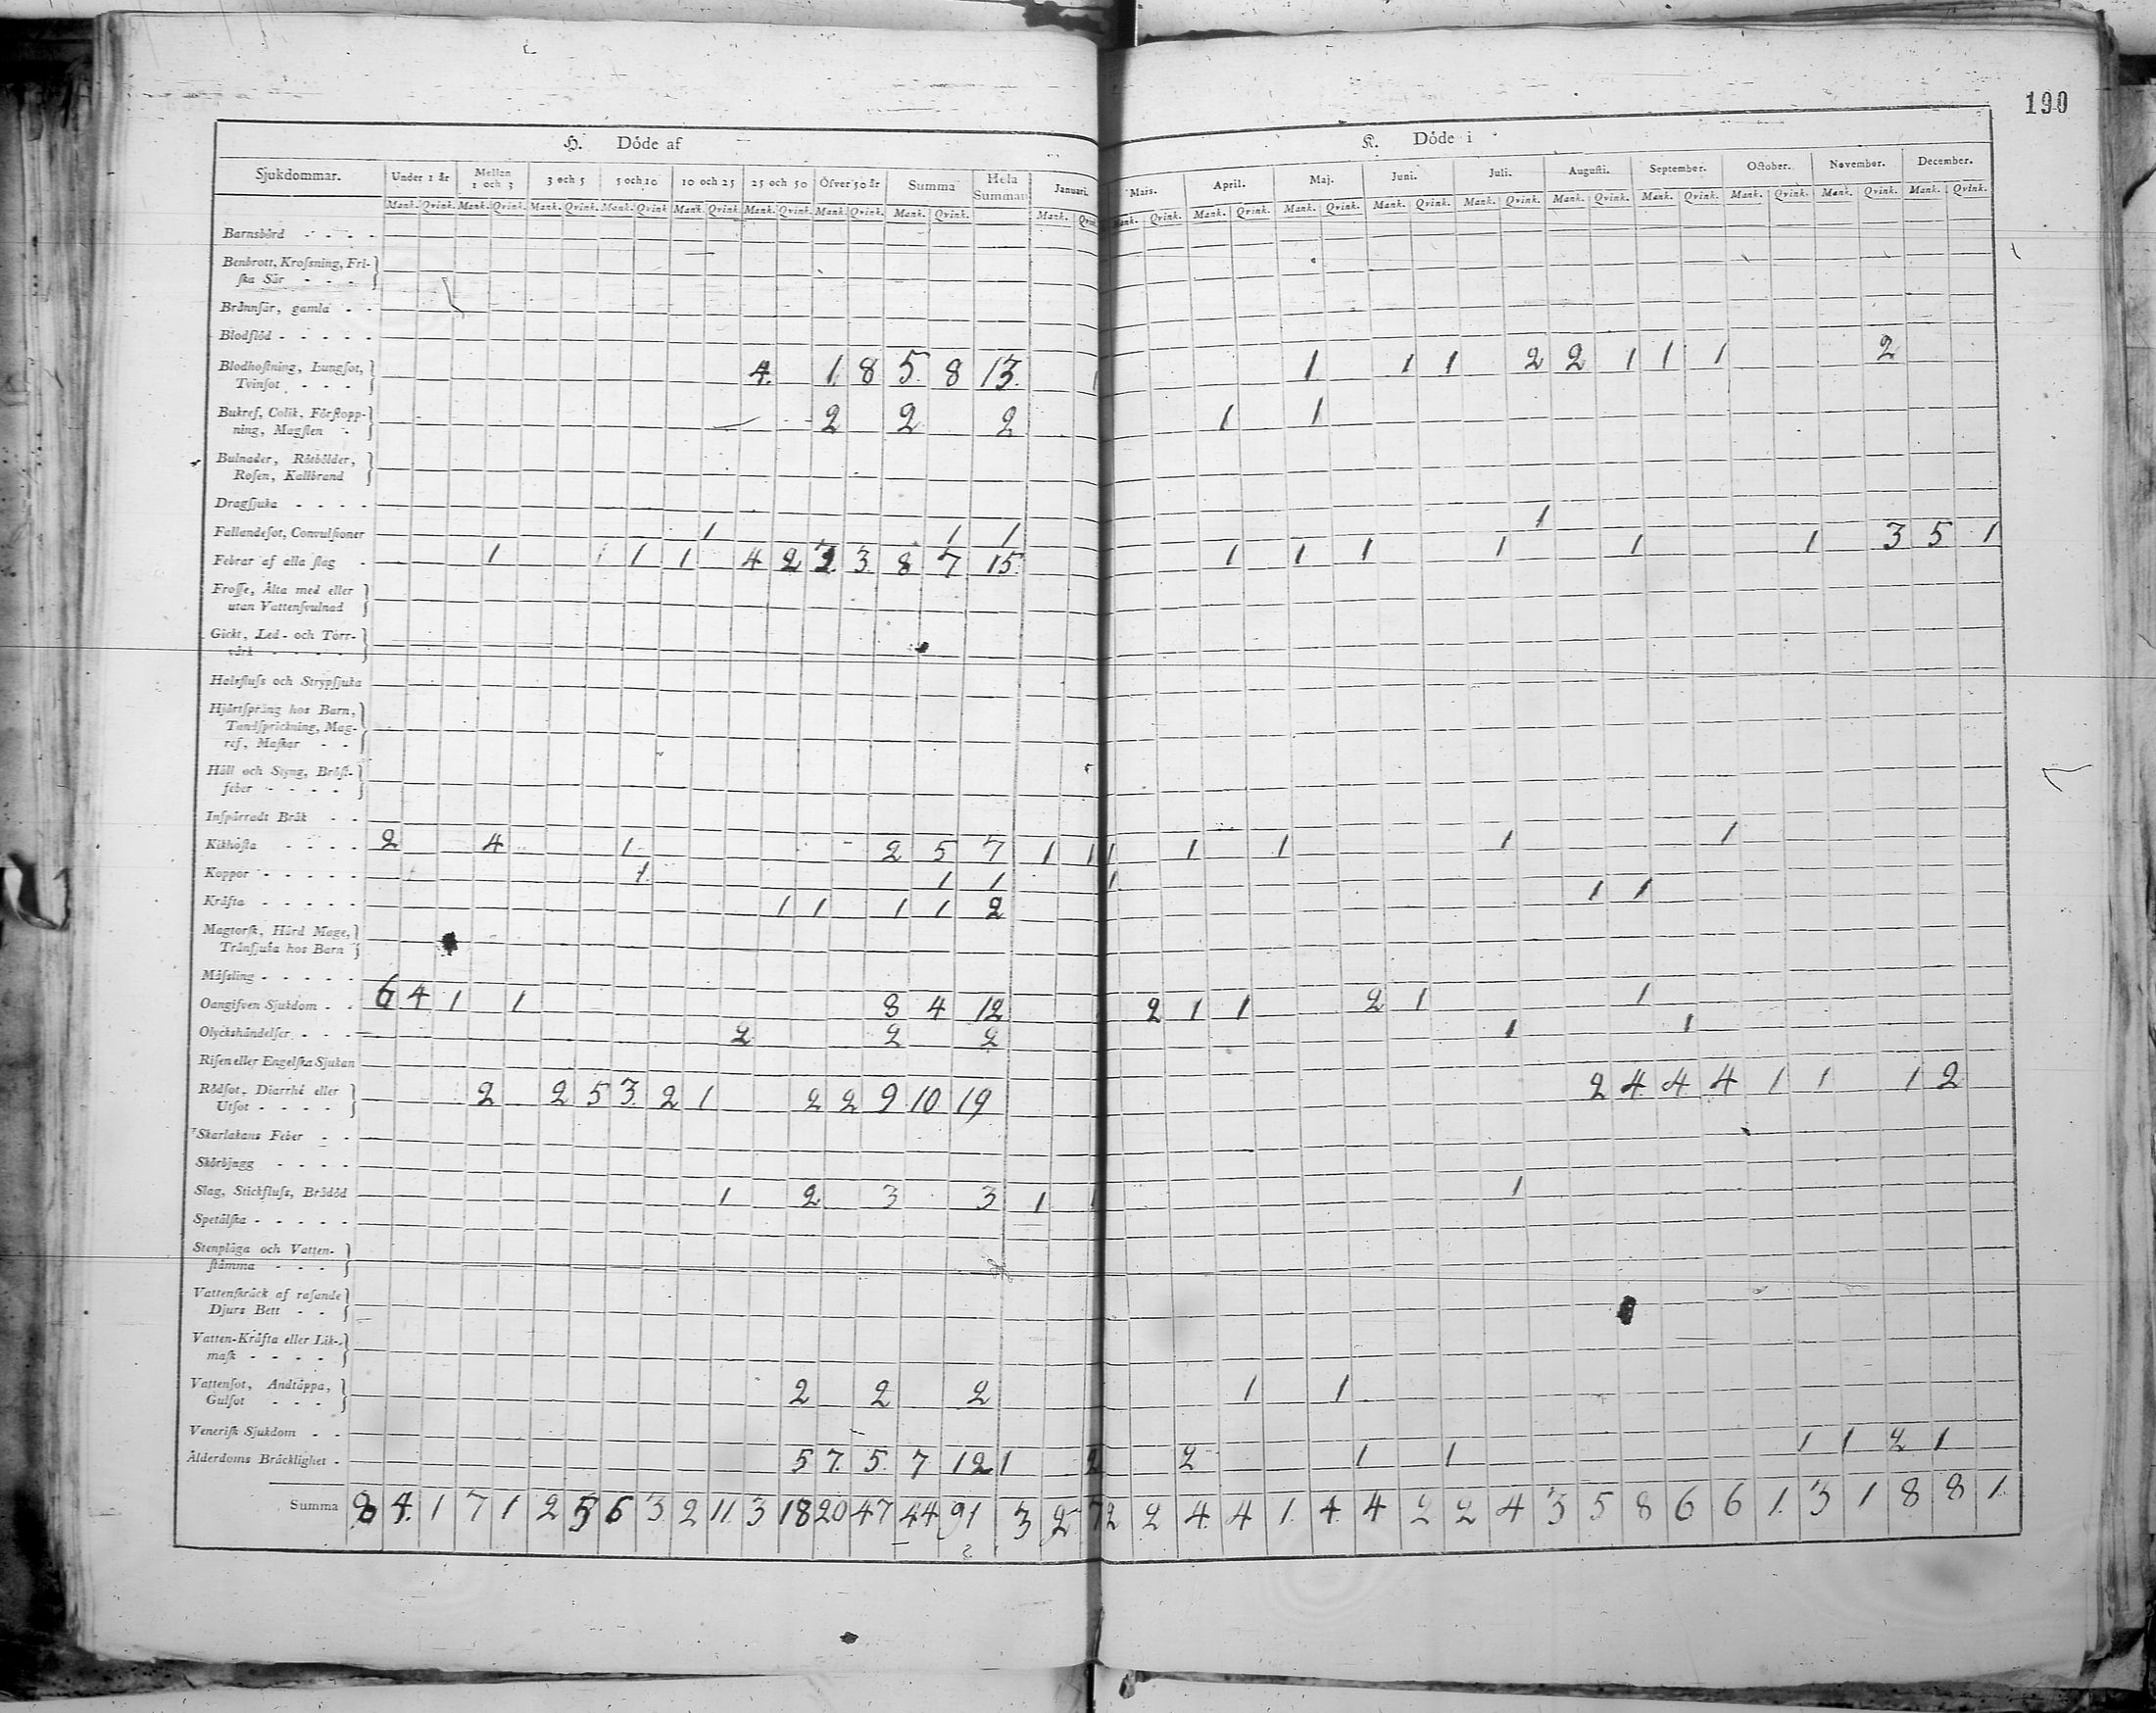 190
H. Döde af K. Döde i
Sjukdommar. Under 1 år Mellan 1 och 3 3 och 5 5 och 10 10 och 25 25 och 50 Öfver 50 år Summa Hela Summan Januari. Mars. April. Maj. Juni. Juli. Augusti. September. October. November. December.
Mank. Qvink. Mank. Qvink. Mank. Qvink. Mank. Qvink. Mank. Qvink. Mank. Qvink. Mank. Qvink. Mank. Qvink. Mank. Qvink. Mank. Qvink. Mank. Qvink. Mank. Qvink. Mank. Qvink. Mank. Qvink. Mank. Qvink. Mank. Qvink. Mank. Qvink. Mank. Qvink. Mank. Qvink.
Barnsbörd - - - -
Benbrott, Krosſning, Fri-
ſka Sår - - -
Brännſår, gamla - -
Blodflöd - - - - -
Blodhoſtning, Lungſot,
Tvinſot - - - 4. 1. 8 5. 8 13. 1 1 1 1 2 2 1 1 1 2
Bukref, Colik, Förſtopp-
ning, Magſten - 2 2 2 1 1
Bulnader, Rötbölder,
Roſen, Kallbrand
Dragſjuka - - - -
Fallandeſot, Convulſioner 1 1 1 1
Febrar af alla ſlag - 1 1 1 1 4 2 3. 8 7 15. 1 1 1 1 1 1 3 5 1
Froſſe, Älta med eller
utan Vattenſvulnad
Gickt, Led- och Torr-
värk - - - - -
Halsfluſs och Strypſjuka
Hjärtſpräng hos Barn,
Tandſprickning, Mag-
ref, Maſkar - -
Håll och Styng, Bröſt-
feber - - - -
Inſpärradt Bråk - -
Kikhoſta - - - - 2 4 1 2 5 7 1 1 1 1 1 1 1
Koppor - - - - - 1. 1 1 1
Kräfta - - - - - 1 1 1 1 2 1 1
Magtorſk, Hård Mage,
Tränſjuka hos Barn
Mäſsling - - - - -
Oangifven Sjukdom - - 6 4 1 1 8 4 12 2 1 1 2 1 1
Olyckshändelſer - - - 2 2 2 1 1
Riſen eller Engelſka Sjukan
Rödſot, Diarrhé eller
Utſot - - - - 2 2 5 3. 2 1 2 2 9 10. 19 2 4. 4 4 1 1 1 2
Skarlakans Feber - -
Skörbjugg - - - -
Slag, Stickfluſs, Brådöd 1 2 3 3 1 1 1
Spetälſka - - - - -
Stenplåga och Vatten-
ſtämma - - -
Vattenſkräck af raſande
Djurs Bett - -
Vatten-Kräfta eller Lik-
maſk - - - -
Vattenſot, Andtäppa,
Gulſot - - - 2 2 2 1 1
Veneriſk Sjukdom - -
Ålderdoms Bräcklighet - 5 7. 5. 7 12 1 2 2 1 1 1 1 2 1
Summa 8 4. 1 7 1 2 5 6 3 2 11. 3 18 20 47 44 91 3 2 2 4. 4 1. 4 4 2 2 4 3 5 8 6 6 1. 3 1 8 8 1.